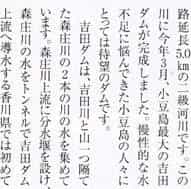 路延長5.0kmの二級河川です。この
川に今年3月、小豆島最大の吉田
ダムが完成しました。慢性的な水
不足に悩んできた小豆島の人々に
とっては待望のダムです。
吉田ダムは、吉田川と山一つ隔
た森庄川の2本の川の水を集めて
います。森庄川上流に分水堰を設け、
森庄川の水をトンネルで吉田ダム
上流へ導水する香川県では初めて